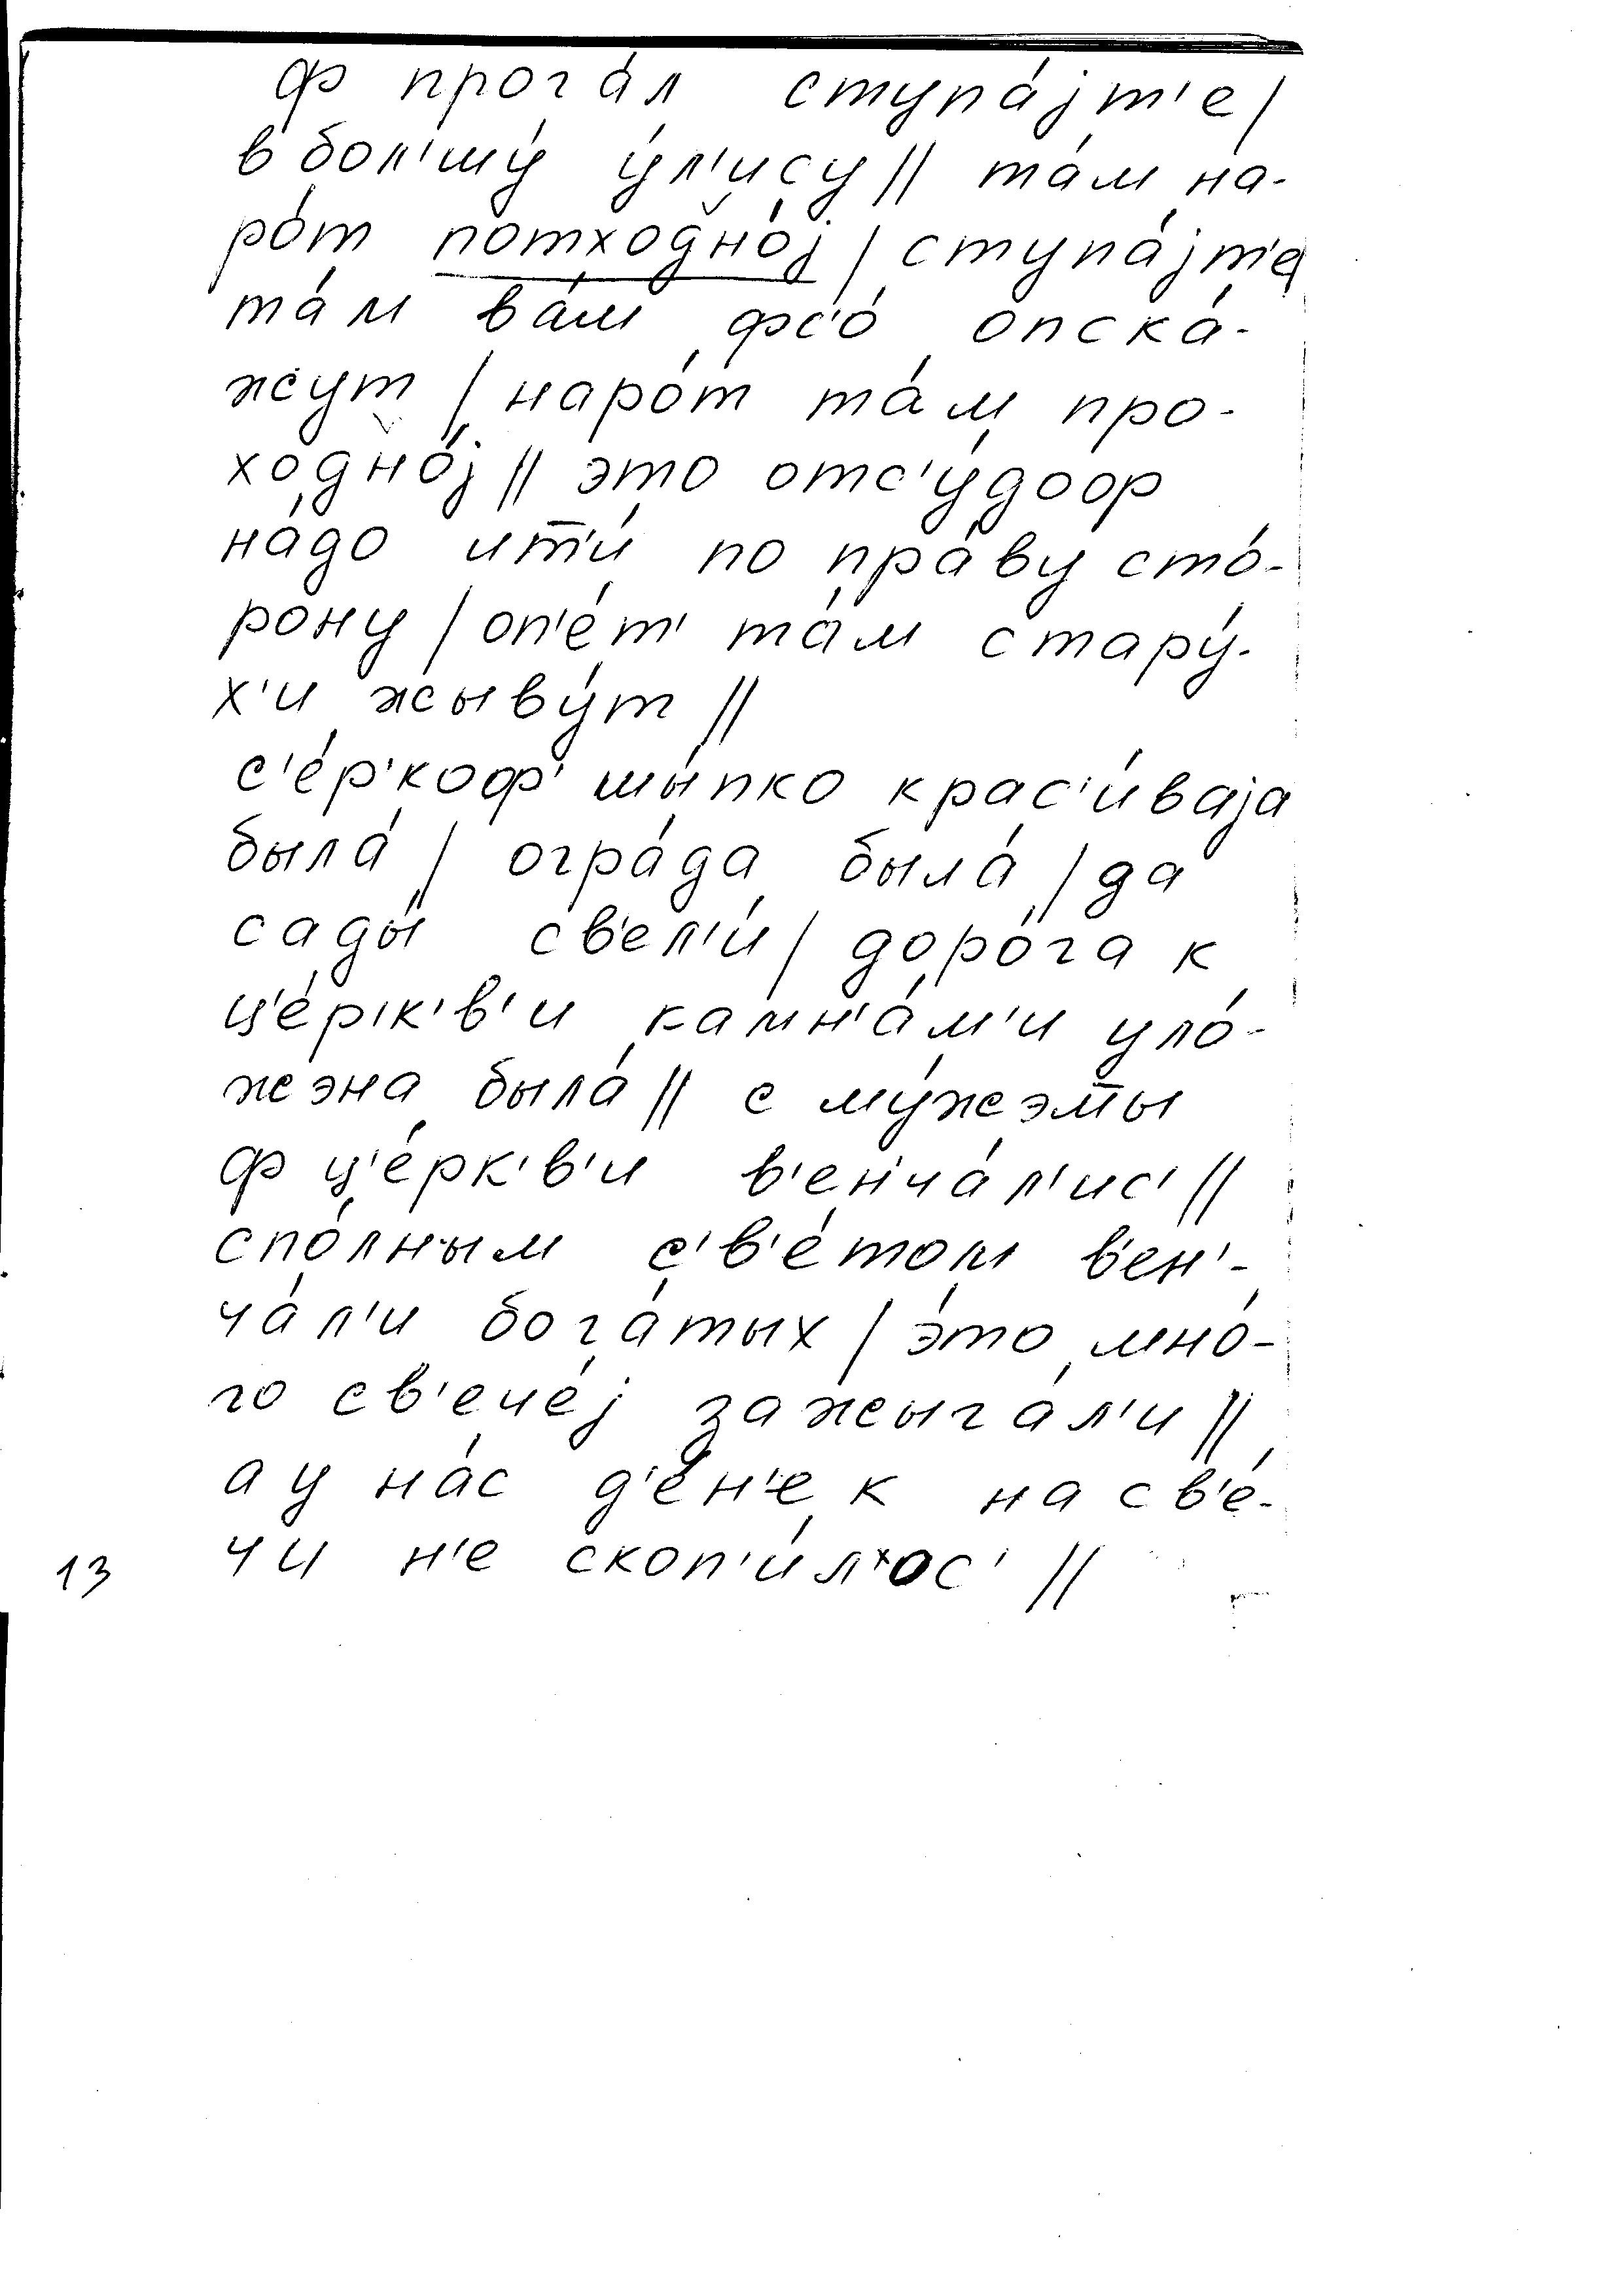 ф прога́л ступа́јт'е /
в бол'шу́ у́л'ису // та́м на-
ро́т потходно́ј / ступа́јт'е
та́м ва́м фс'о́ опска́-
жут / наро́т та́м про-
ходно́ј // это отс'у́доор
на́до ит̅'и́ по пра́ву сто́-
рону / оп'е́т' та́м стару́-
х'и жыву́т //
с'е́р'коф' шы́пко крас'и́ваја
была́ / огра́да была́ / да
сады́ св'ел'и́ / доро́га к
ц'е́р'к'в'и камн'а́м'и уло́-
жэна была́ // с му́жэт̅ы
ф ц'е́рк'в'и в'ен'ча́л'ис' //
спо́лным с'в'е́том в'ен'-
ча́л'и бога́тых / э́то мно́-
го св'ече́ј зажыга́л'и //
а у на́с д'е́н'ек на св'е́-
чи н'е скоп'и́лос' //
13